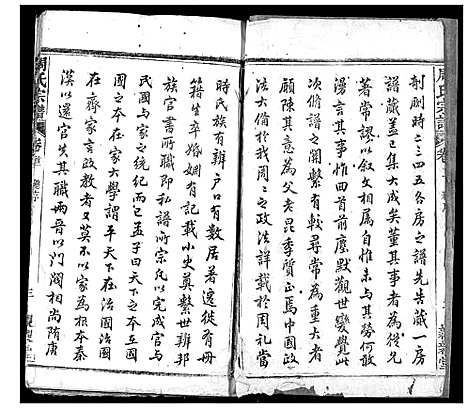 剞劂時之三四五各房之譜先告蕆一房
譜蕆蓋已集大成矣董其事者爲從兄
著常謬以叙文相屬自惟未與其勞何敢
漫言其事惟四首塵默觀世變覺此
次修譜之關繫有較尋常爲重大者
願陳其意爲父老昆季質正焉中國政
法大備於我周之政法詳載於周禮當
時氏族有辨戶口有數居著遷徙有冊
籍生卒婚姻有記載小史奠繫世辨邦
族官書所職即私譜所宗氏以完成官与
民國与家之統紀而已孟子曰天下之本在國
國之本在家大學謂平天下在治國治國
在齊家言政教者又莫不以家爲根本秦
漢以還官失其職兩晉以門閥相尚隋唐
周氏宗譜
三
親親堂